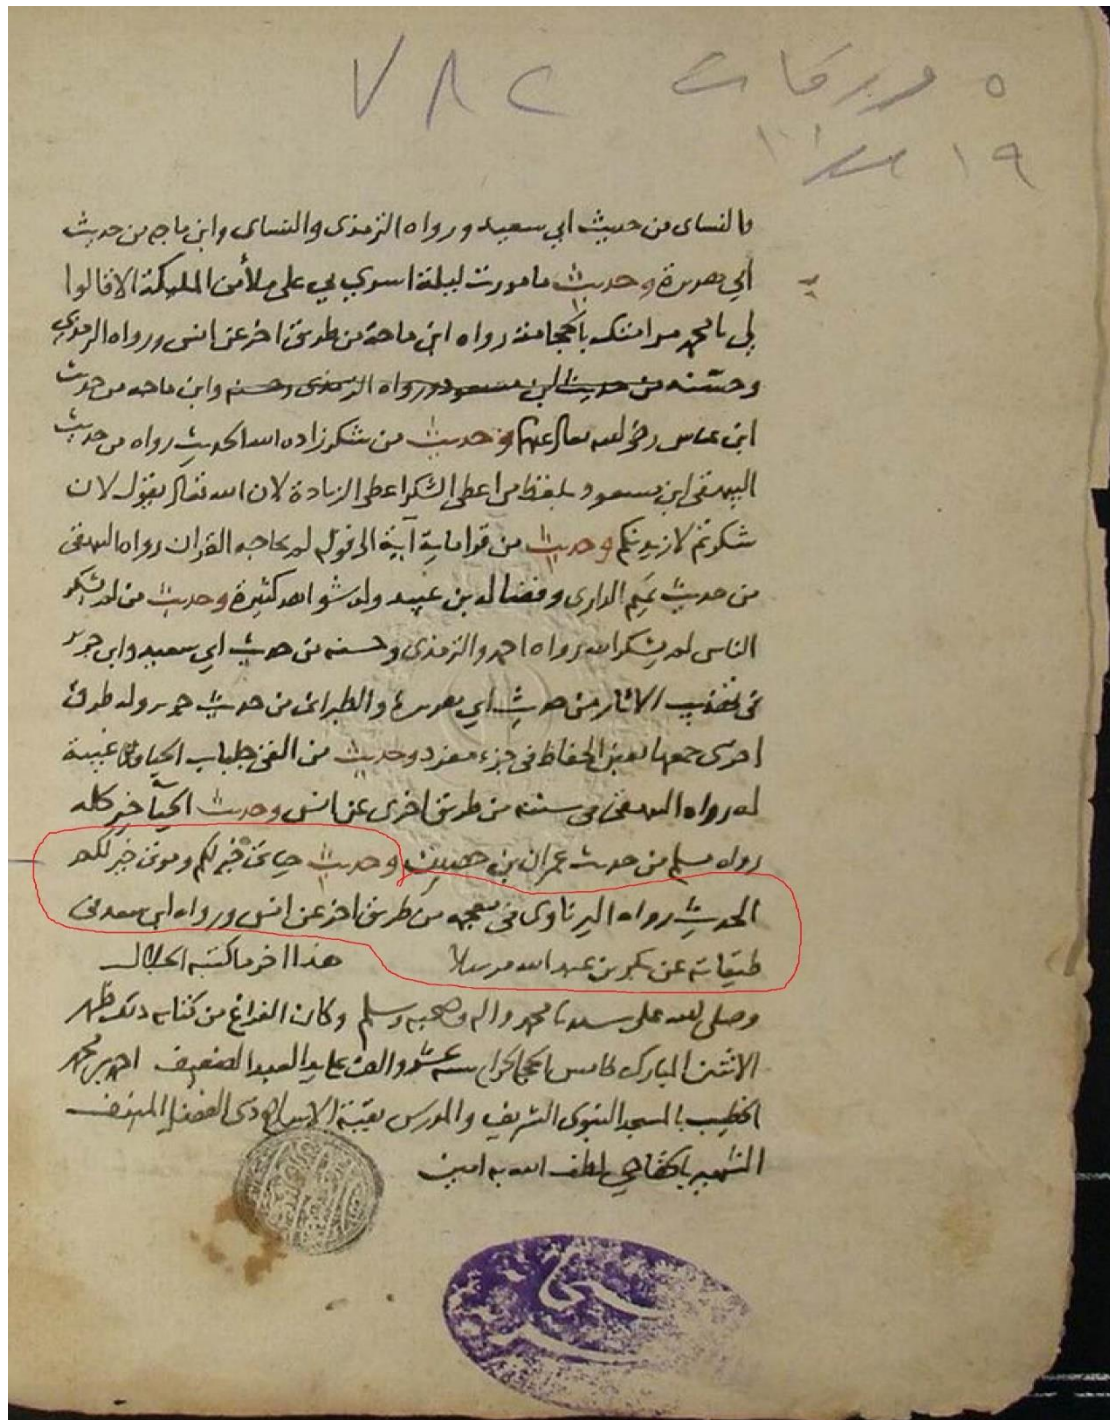 ٥ ورقات ٧٨٢
١٩ س
والنساى من حديث ابي سعيد ورواه الترمذى والنساى وابن ماجه من حديث
ابي هريرة وحديث ما مررت ليلة اسري بي على ملأ من المليكة الا قالوا
لي يا محمد مر امتك بالحجامة رواه ابن ماجة من طريق اخر عن انس ورواه الترمذي
وحسنه من حديث ابن مسعود ورواه الترمذى وحسنه وابن ماجه من حديث
ابن عباس رضى الله تعالى عنهما وحديث من شكر زاده الله الحديث رواه من حديث
البيهقى ابن مسعود بلفظ من اعطى الشكر اعطى الزيادة لان الله تعالى يقول لان
شكرتم لازيدنكم وحديث من قرا ماية آية الى قوله لم يحاجه القران رواه البيهقى
من حديث تميم الدارى وفضاله بن عبيد وله شواهد كثيرة وحديث من لم يشكر
الناس لم يشكر الله رواه احمد والترمذى وحسنه من حديث ابي سعيد وابن جرير
فى تهذيب الاثار من حديث ابي هريرة والطبرانى من حديث جرير وله طرق
اخرى جمعها بعض الحفاظ فى جزء مفرد وحديث من القى جلباب الحيا فلا غيبة
له رواه البيهقى فى سننه من طريق اخرى عن انس وحديث الحيآ خير كله
رواه مسلم من حديث عمران بن حصين وحديث حياتى خير لكم وموتى خير لكم
الحديث رواه البرناوى فى معجمه من طريق اخر عن انس ورواه ابن سعد فى
طبقاته عن بكر بن عبد الله مرسلا هذا اخر ما كتبه الجلال
وصلى الله على سيدنا محمد واله وصحبه وسلم وكان الفراغ من كتابه ظهر
الاثنين المبارك خامس الحجة الحرام سنة والف على يد العبد الضعيف احمد بن محمد
الخطيب بالمسجد النبوى الشريف والمدرس بقبة الاسلام ذى الفضل المنيف
الشهير بالخفاجي لطف الله به امين